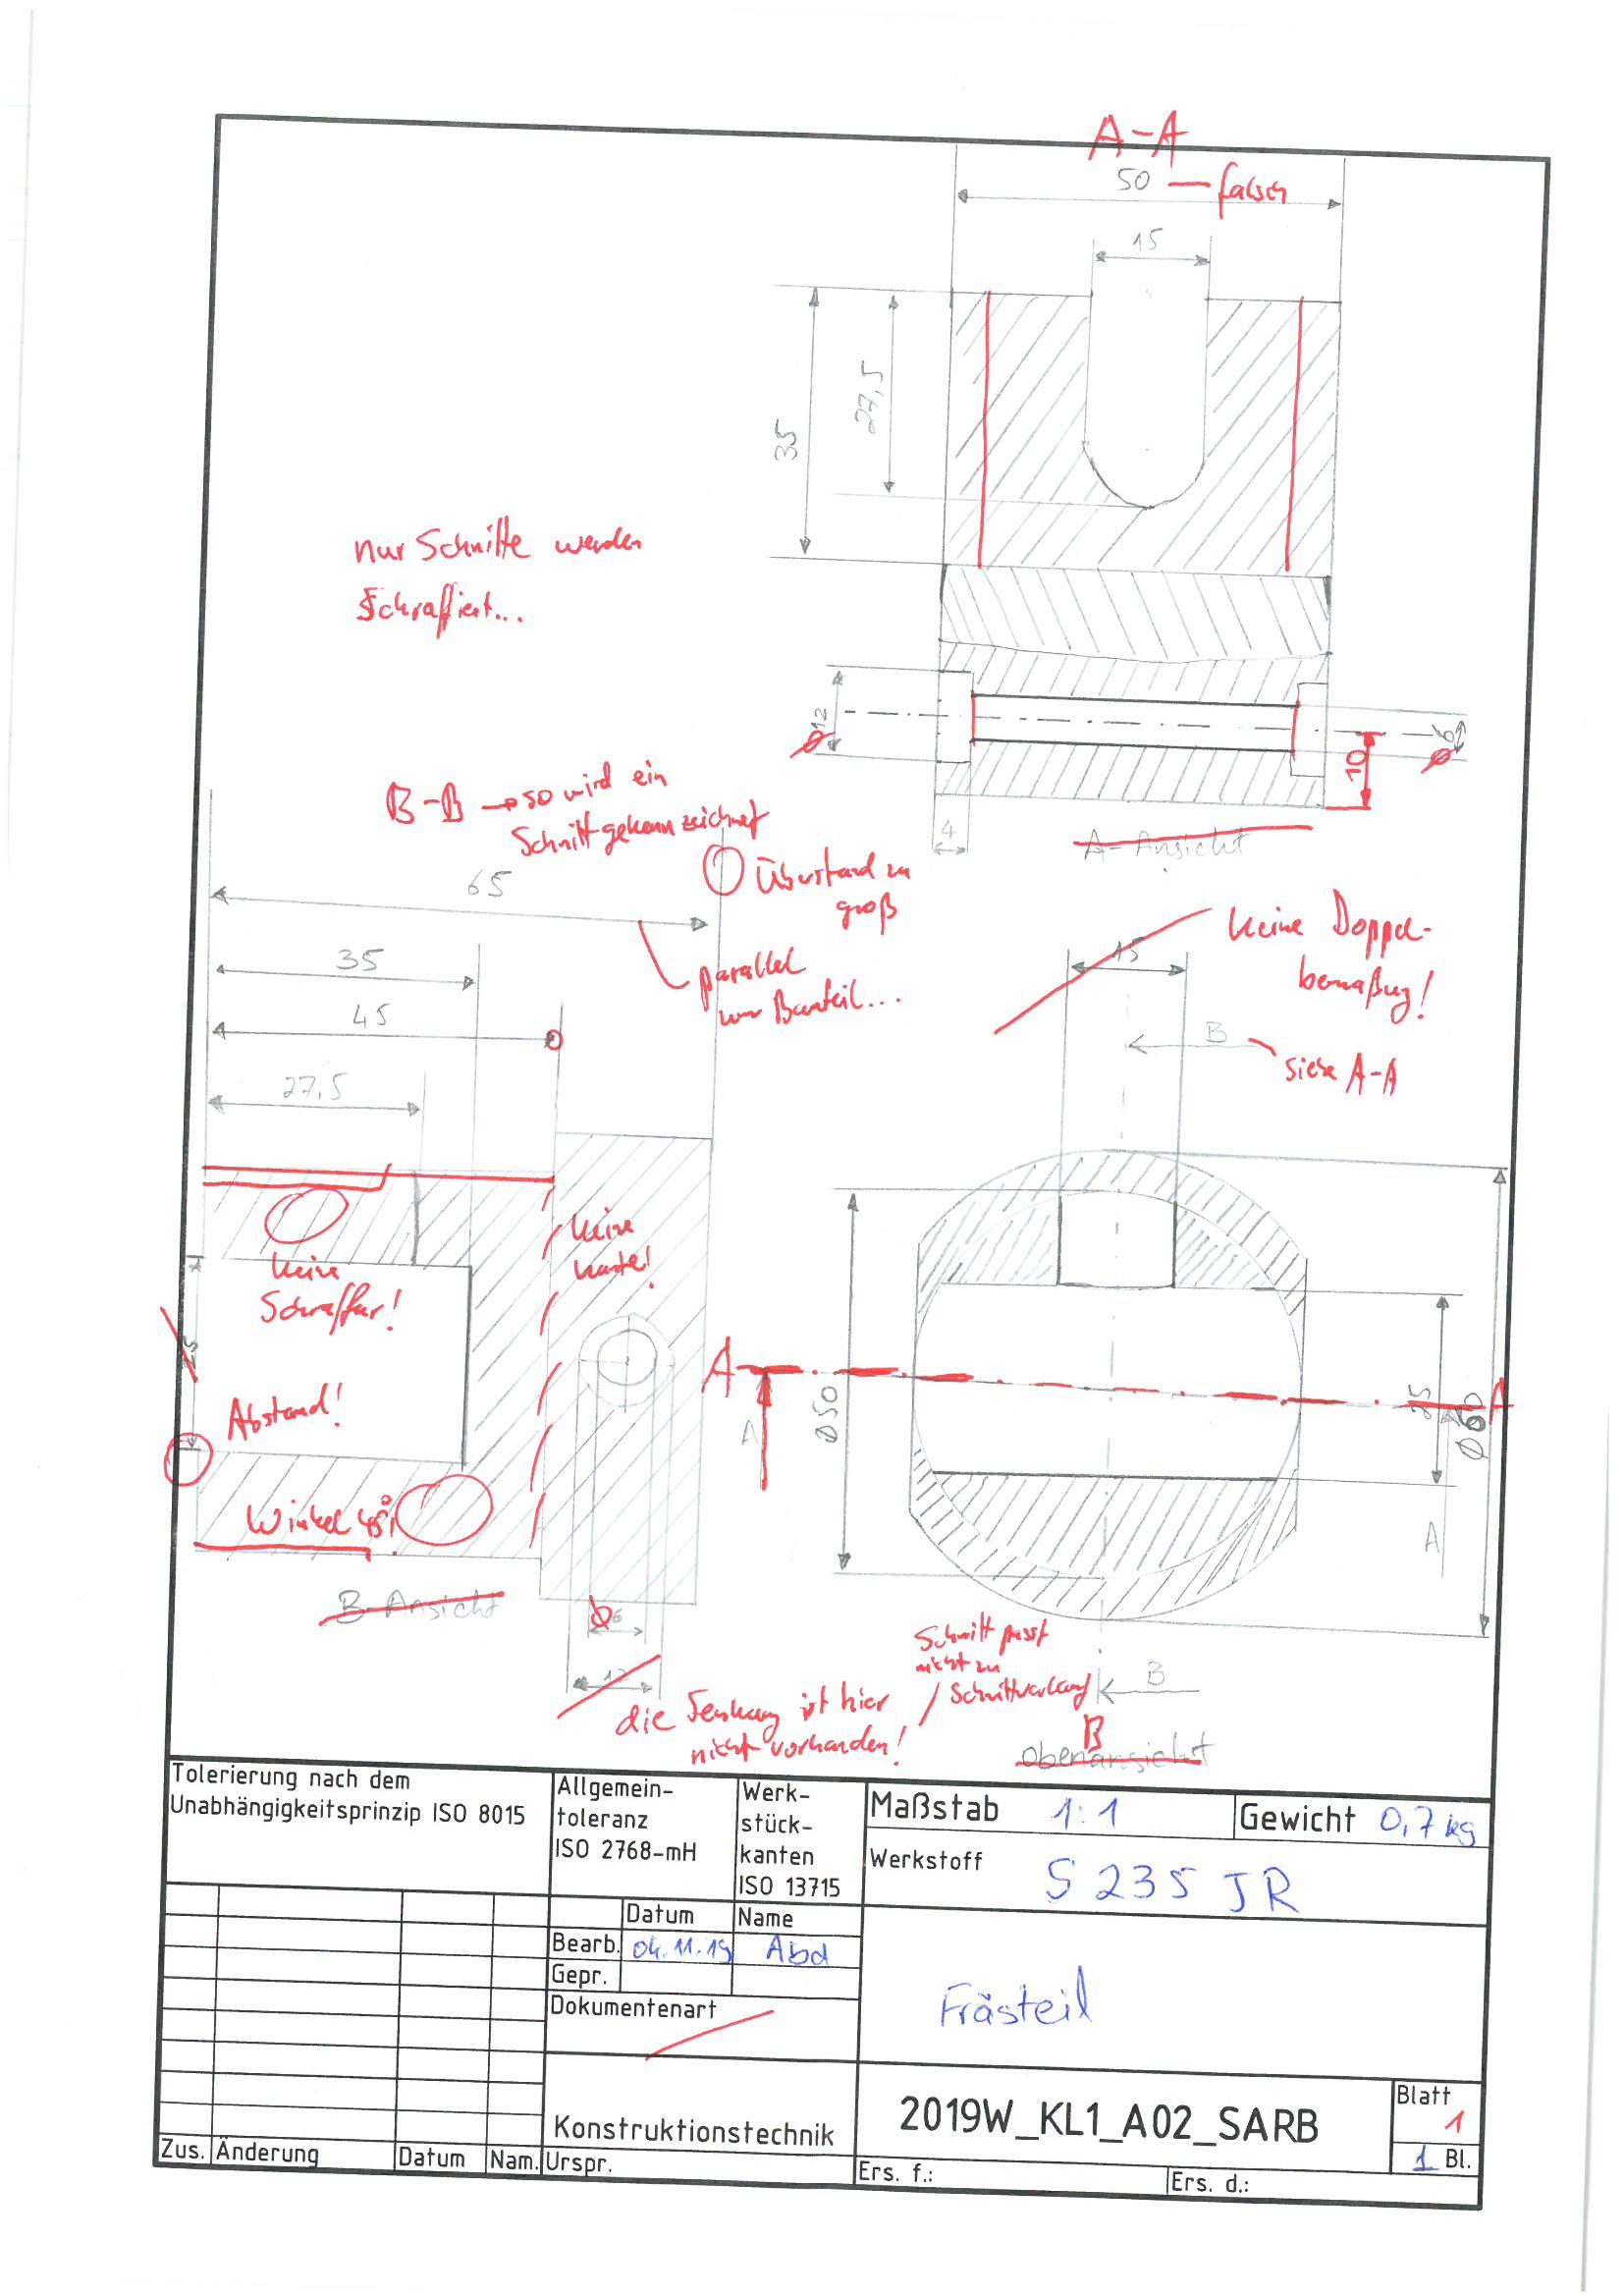 A-A
50 — falsch
15
35
27,5
nur Schnitte werden
Schraffiert...
⌀12
10
⌀6
4
A-Ansicht
B-B → so wird ein
Schnitt gekennzeichnet
Überstand zu
groß
65
parallel
zum Bauteil...
35
45
27,5
keine Doppel-
bemaßung!
15
B
siehe A-A
keine
Kante!
keine
Schraffur!
25
Abstand!
Winkel 45°!
B-Ansicht
⌀6
12
die Senkung ist hier
nicht vorhanden!
A
A
A
⌀50
25
⌀60
A
Schnitt passt
nicht zu
Schnittverlauf
B
B
Obenansicht
Tolerierung nach dem
Unabhängigkeitsprinzip ISO 8015
Allgemein-
toleranz
ISO 2768-mH
Werk-
stück-
kanten
ISO 13715
Maßstab 1:1
Gewicht 0,7 kg
Werkstoff S 235 JR
Datum Name
Bearb. 04.11.19 Abd
Gepr.
Dokumentenart
Frästeil
Konstruktionstechnik
2019W_KL1_A02_SARB
Blatt
1
1 Bl.
Zus. Änderung Datum Nam. Urspr.
Ers. f.: Ers. d.: